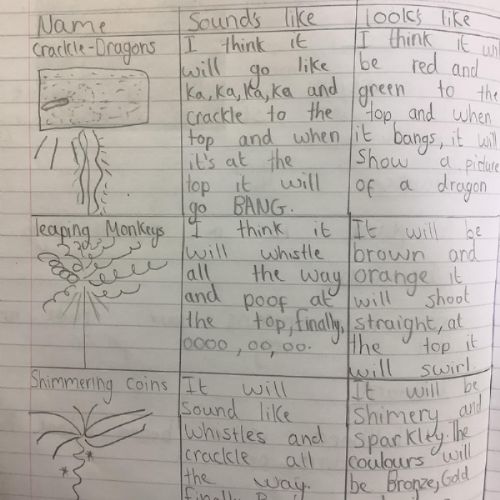 Name
Sounds like
looks like
Crackle-Dragons
I think it
will go like
Ka, Ka, Ka, Ka and
crackle to the
top and when
it's at the
top it will
go BANG.
I think it will
be red and
green to the
top and when
it bangs, it will
show a picture
of a dragon
leaping Monkeys
I think it
will whistle
all the way
and poof at
the top, finally,
oooo, oo, oo.
It will be
brown and
orange it
will shoot
straight, at
the top it
will swirl
Shimmering coins
It will
sound like
whistles and
crackle all
the way.
It will be
Shimery and
sparkley. The
coulours will
be Bronze, Gold